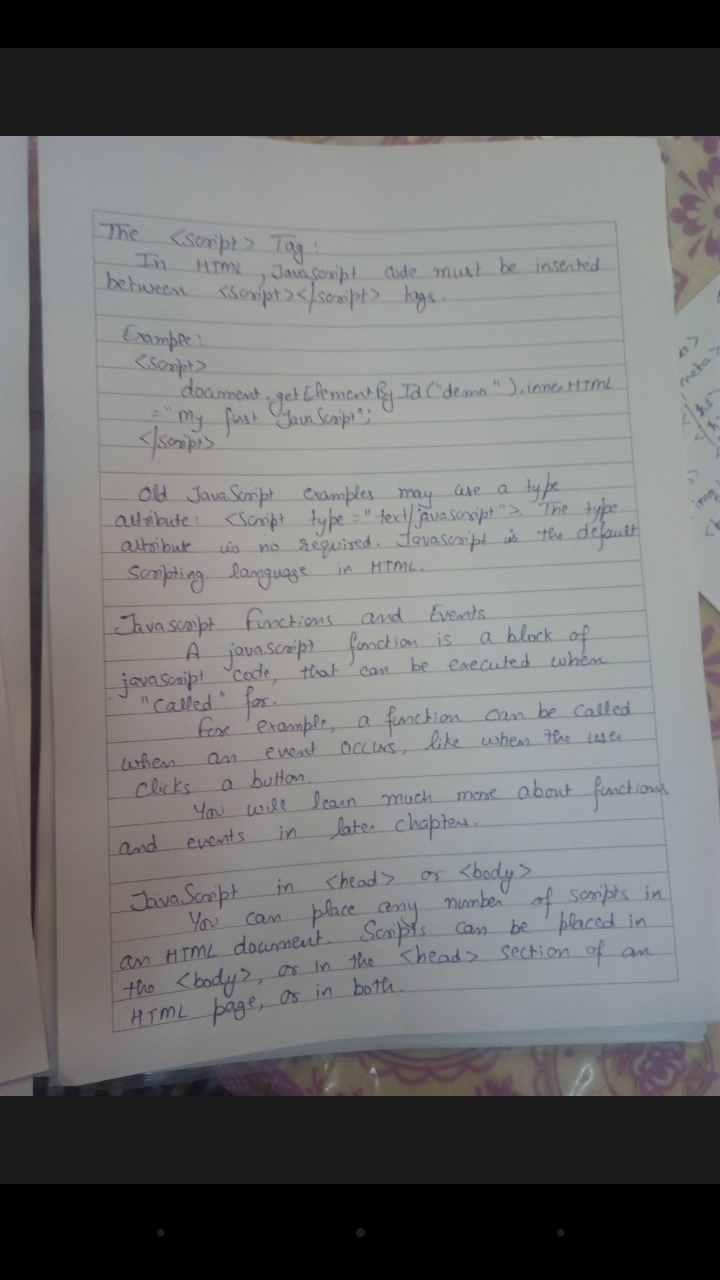 The <script> Tag:
In HTML, Javascript code must be inserted
between <script></script> tags.
Example:
<script>
document.getElementById("demo").innerHTML
="My first JavaScript";
</script>
Old JavaScript examples may use a type
attribute: <script type="text/javascript">. The type
attribute is no required. Javascript is the default
scripting language in HTML.
Javascript functions and Events
A javascript function is a block of
javascript code, that can be executed when
"called" for.
For example, a function can be called
when an event occurs, like when the user
clicks a button.
You will learn much more about functions
and events in later chapters.
JavaScript in <head> or <body>
You can place any number of scripts in
an HTML document. Scripts can be placed in
the <body>, or in the <head> section of an
HTML page, or in both.
meta>
</
img
<b